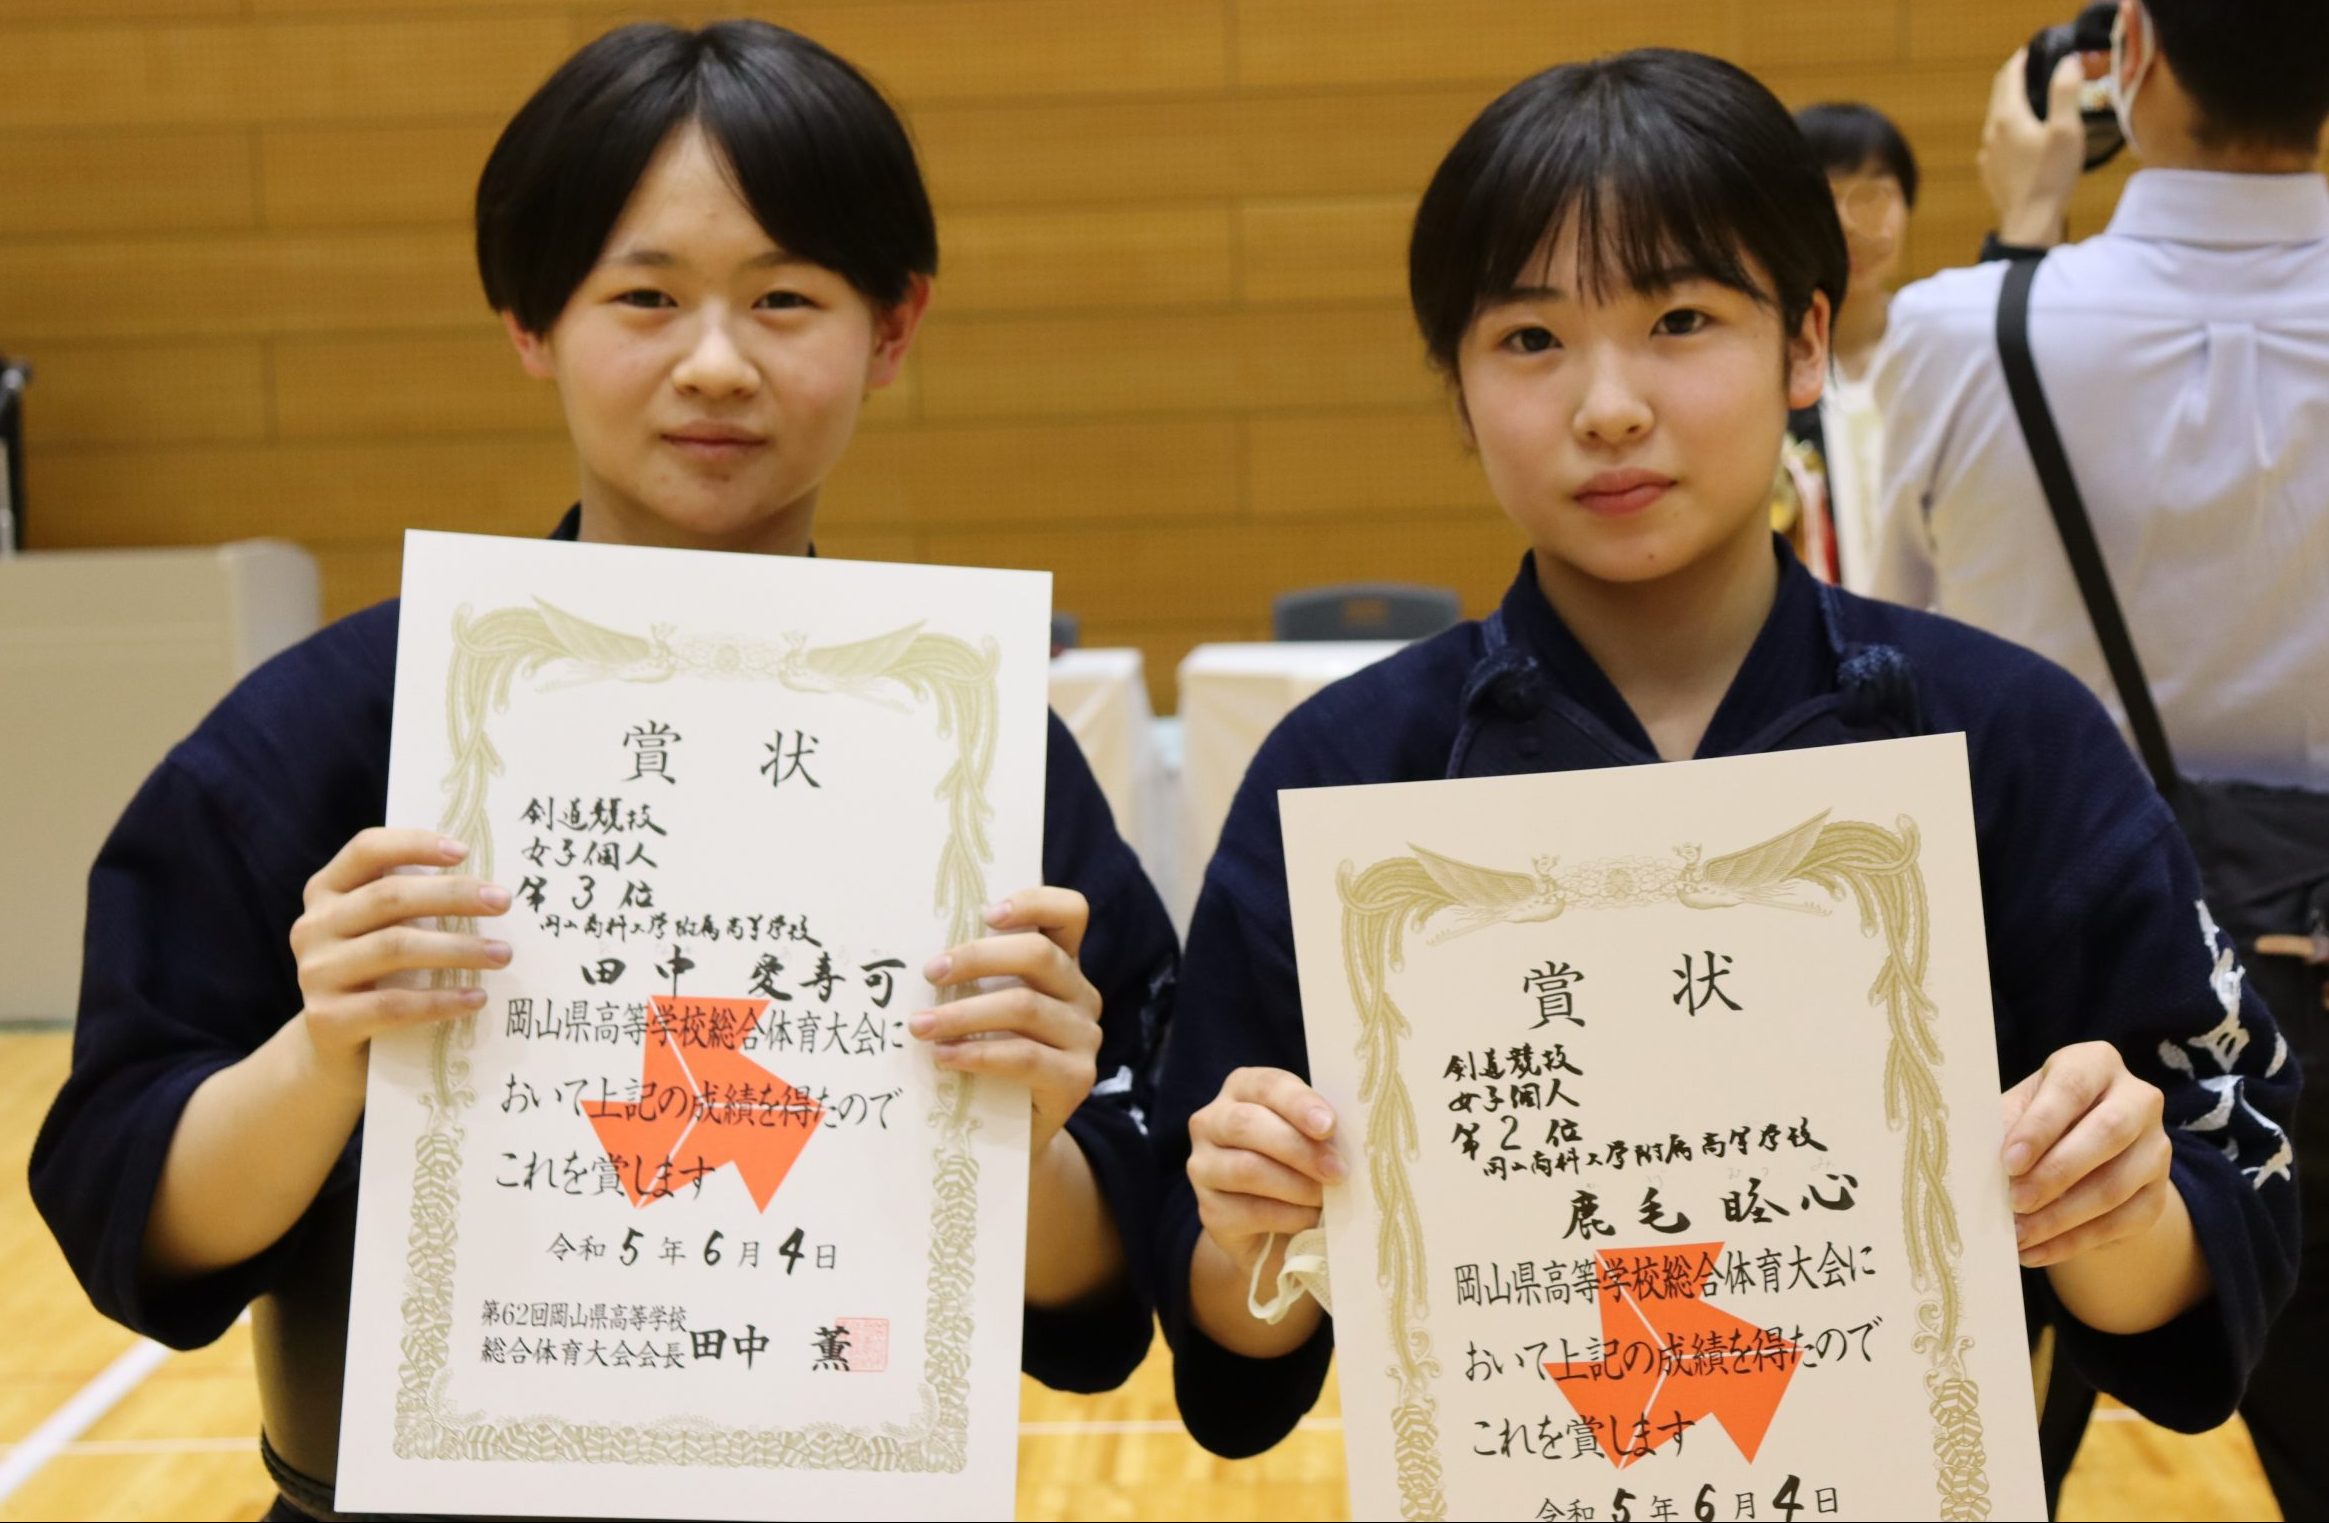 賞状
剣道競技
女子個人
第3位
岡山商科大学附属高等学校
田中 愛寿可
岡山県高等学校総合体育大会に
おいて上記の成績を得たので
これを賞します
令和5年6月4日
第62回岡山県高等学校
総合体育大会会長 田中 薫
賞状
剣道競技
女子個人
第2位
岡山商科大学附属高等学校
鹿毛 睦心
岡山県高等学校総合体育大会に
おいて上記の成績を得たので
これを賞します
令和5年6月4日